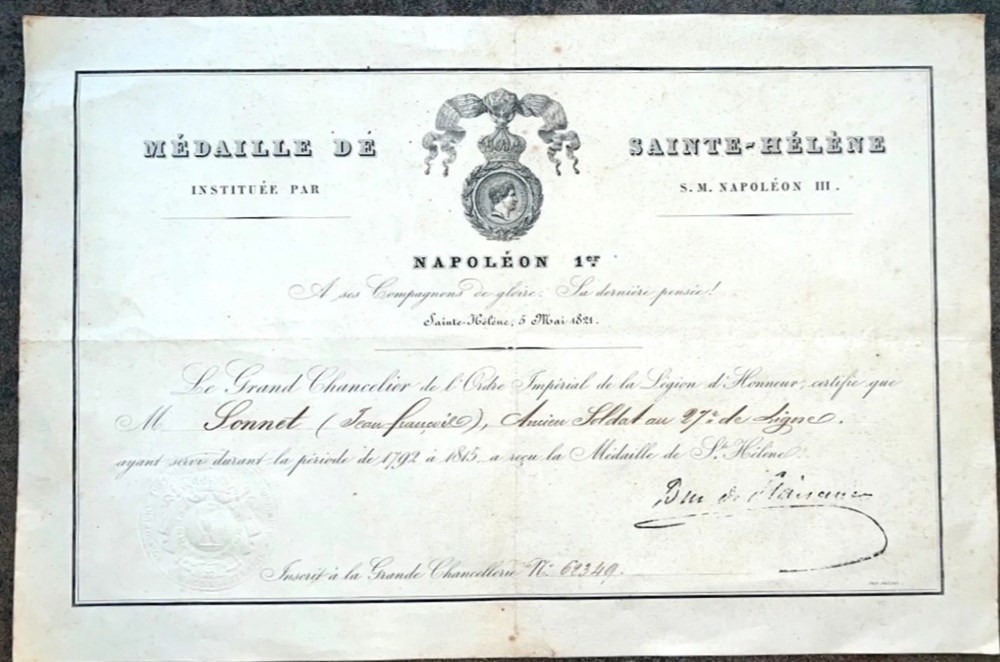 MÉDAILLE DÉ SAINTE-HÉLÈNE
INSTITUÉE PAR S.M. NAPOLÉON III.
NAPOLÉON 1er
A ses Compagnons de gloire, Sa dernière pensée!
Sainte-Hélène, 5 Mai 1821.
Le Grand Chancelier de l'Ordre Impérial de la Légion d'Honneur, certifie que
M Sonnet (Jean françois), Ancien Soldat au 27e de Ligne.
ayant servi durant la période de 1792 à 1815, a reçu la Médaille de Ste Hélène.
Duc de Plaisance
Inscrit à la Grande Chancellerie No 62349.